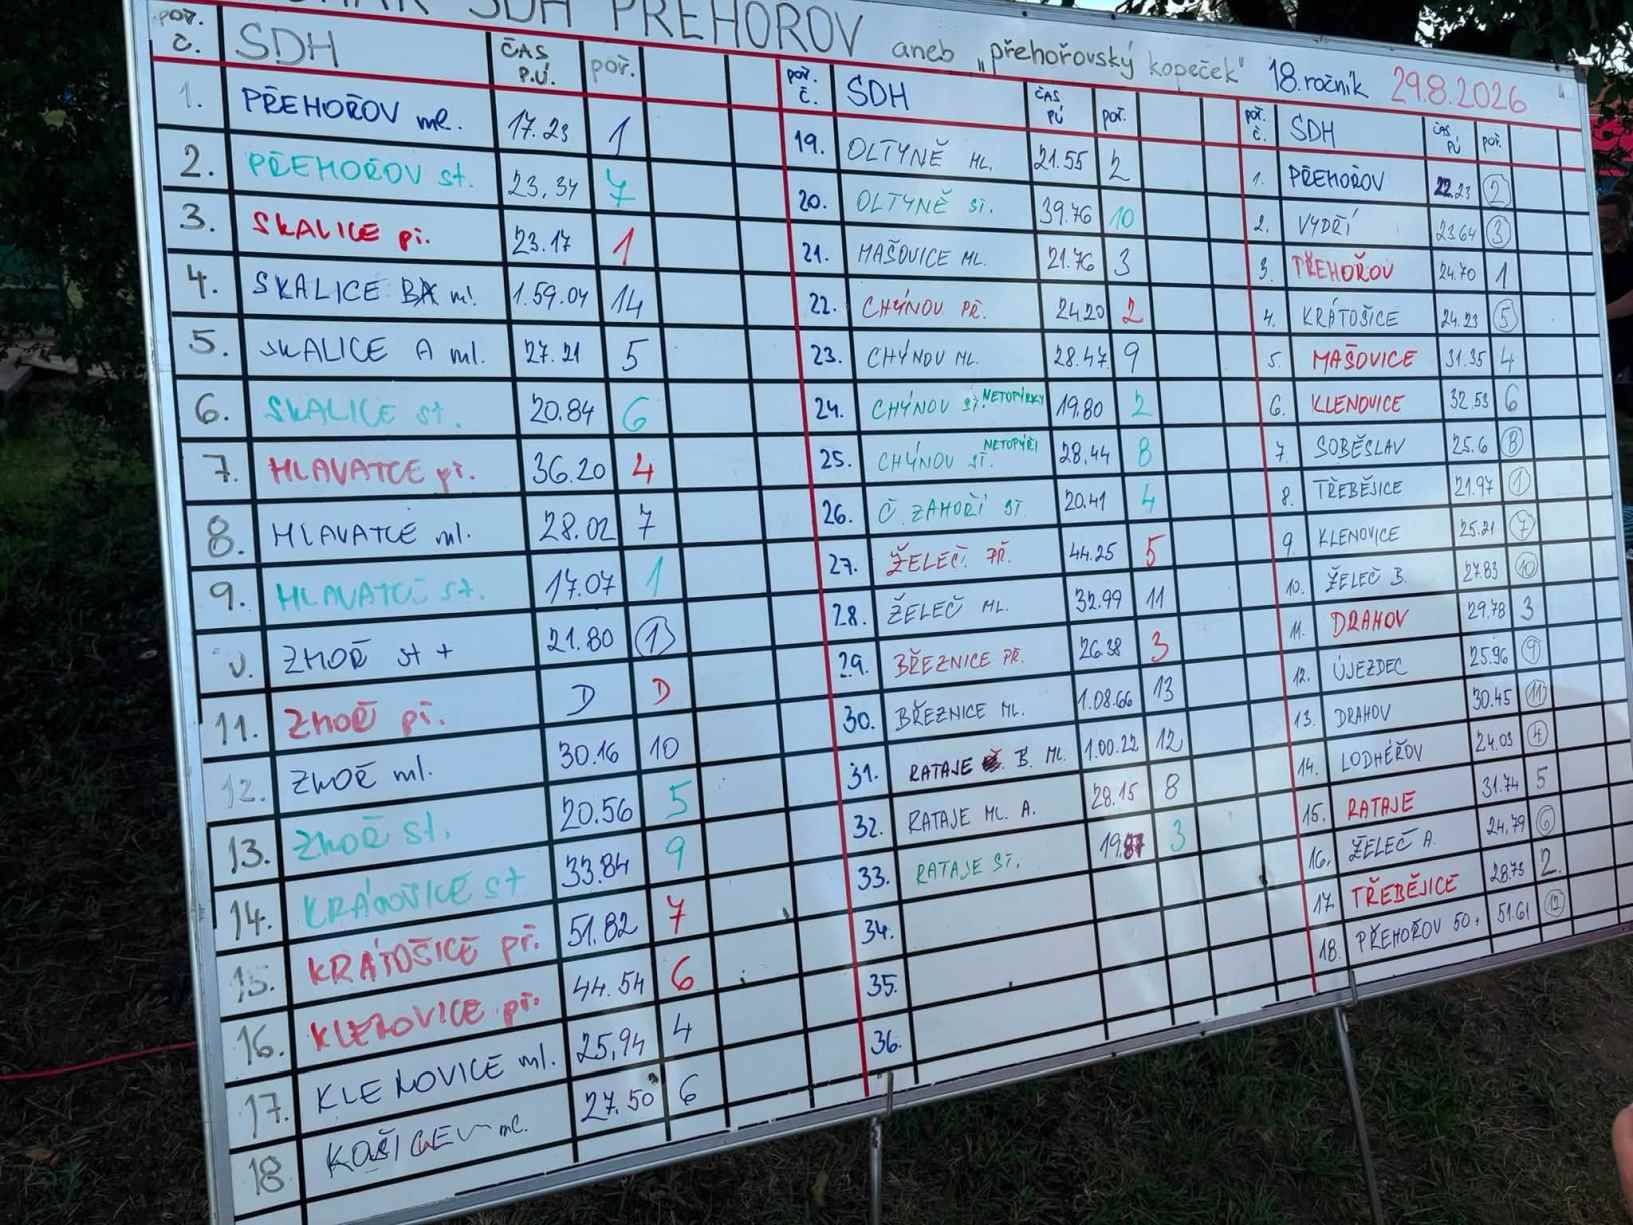 SDH PŘEHOŘOV aneb „přehořovský kopeček" 18. ročník 29.8.2026
poř. č. SDH ČAS P.Ú. poř.
1. PŘEHOŘOV ml. 17.23 1
2. PŘEHOŘOV st. 23.34 7
3. SKALICE př. 23.17 1
4. SKALICE B ml. 1.59.04 14
5. SKALICE A ml. 27.21 5
6. SKALICE st. 20.84 6
7. HLAVATCE př. 36.20 4
8. HLAVATCE ml. 28.02 7
9. HLAVATCE st. 17.07 1
ZHOŘ st + 21.80 1
11. ZHOŘ př. D D
12. ZHOŘ ml. 30.16 10
13. ZHOŘ st. 20.56 5
14. KRÁTOŠICE st 33.84 9
15. KRÁTOŠICE př. 51.82 7
16. KLENOVICE př. 44.54 6
17. KLENOVICE ml. 25.94 4
18 KOŠICE ml. 27.50 6
poř. č. SDH ČAS PÚ poř.
19. OLTYNĚ ML. 21.55 2
20. OLTYNĚ ST. 39.76 10
21. MAŠOVICE ML. 21.76 3
22. CHÝNOV PŘ. 24.20 2
23. CHÝNOV ML. 28.47 9
24. CHÝNOV ST. NETOPÝRKY 19.80 2
25. CHÝNOV ST. NETOPÝŘI 28.44 8
26. Č. ZÁHOŘÍ ST 20.41 4
27. ŽELEČ PŘ. 44.25 5
28. ŽELEČ ML. 32.99 11
29. BŘEZNICE PŘ. 26.38 3
30. BŘEZNICE ML. 1.08.66 13
31. RATAJE B. ML. 1.00.22 12
32. RATAJE ML. A. 28.15 8
33. RATAJE ST. 19.87 3
34.
35.
36.
poř. č. SDH ČAS PÚ poř.
1. PŘEHOŘOV 22.23 2
2. VYDŘÍ 23.64 3
3. TŘEHOŘOV 24.70 1
4. KRÁTOŠICE 24.23 5
5. MAŠOVICE 31.35 4
6. KLENOVICE 32.53 6
7. SOBĚSLAV 25.6 8
8. TŘEBĚJICE 21.97 1
9. KLENOVICE 25.21 7
10. ŽELEČ B. 27.83 10
11. DRAHOV 29.78 3
12. ÚJEZDEC 25.96 9
13. DRAHOV 30.45 11
14. LODHÉŘOV 24.03 4
15. RATAJE 31.74 5
16. ŽELEČ A. 24.79 6
17. TŘEBĚJICE 28.75 2.
18. PŘEHOŘOV 50+ 51.61 12